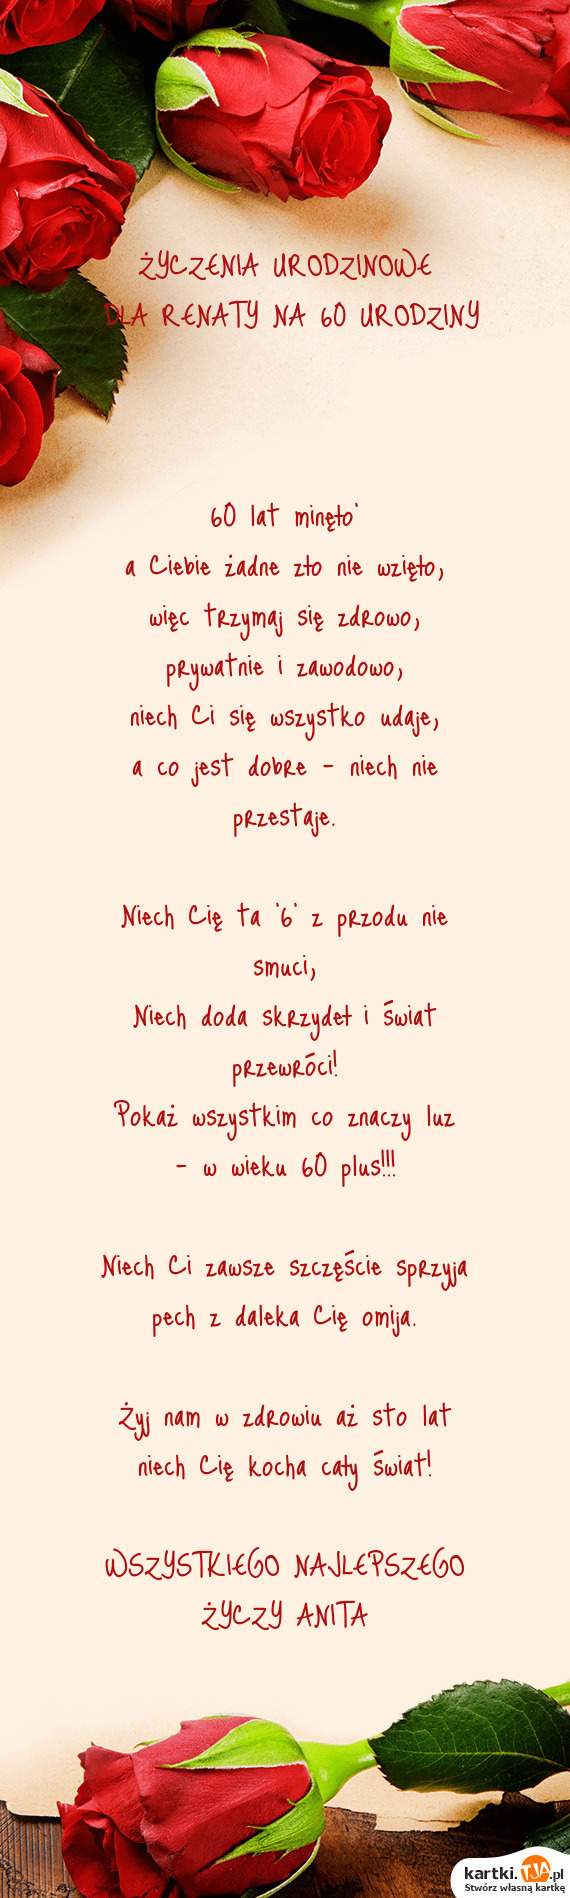 ŻYCZENIA URODZINOWE
DLA RENATY NA 60 URODZINY
60 lat minęło'
a Ciebie żadne zło nie wzięło,
więc trzymaj się zdrowo,
prywatnie i zawodowo,
niech Ci się wszystko udaje,
a co jest dobre - niech nie
przestaje.
Niech Cię ta '6' z przodu nie
smuci,
Niech doda skrzydeł i świat
przewróci!
Pokaż wszystkim co znaczy luz
- w wieku 60 plus!!!
Niech Ci zawsze szczęście sprzyja
pech z daleka Cię omija.
Żyj nam w zdrowiu aż sto lat
niech Cię kocha cały świat!
WSZYSTKIEGO NAJLEPSZEGO
ŻYCZY ANITA
kartki.TJA.pl
Stwórz własną kartkę